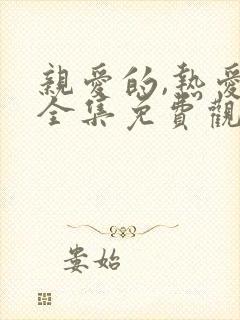 親愛的,熱愛
全集免費觀
娄始